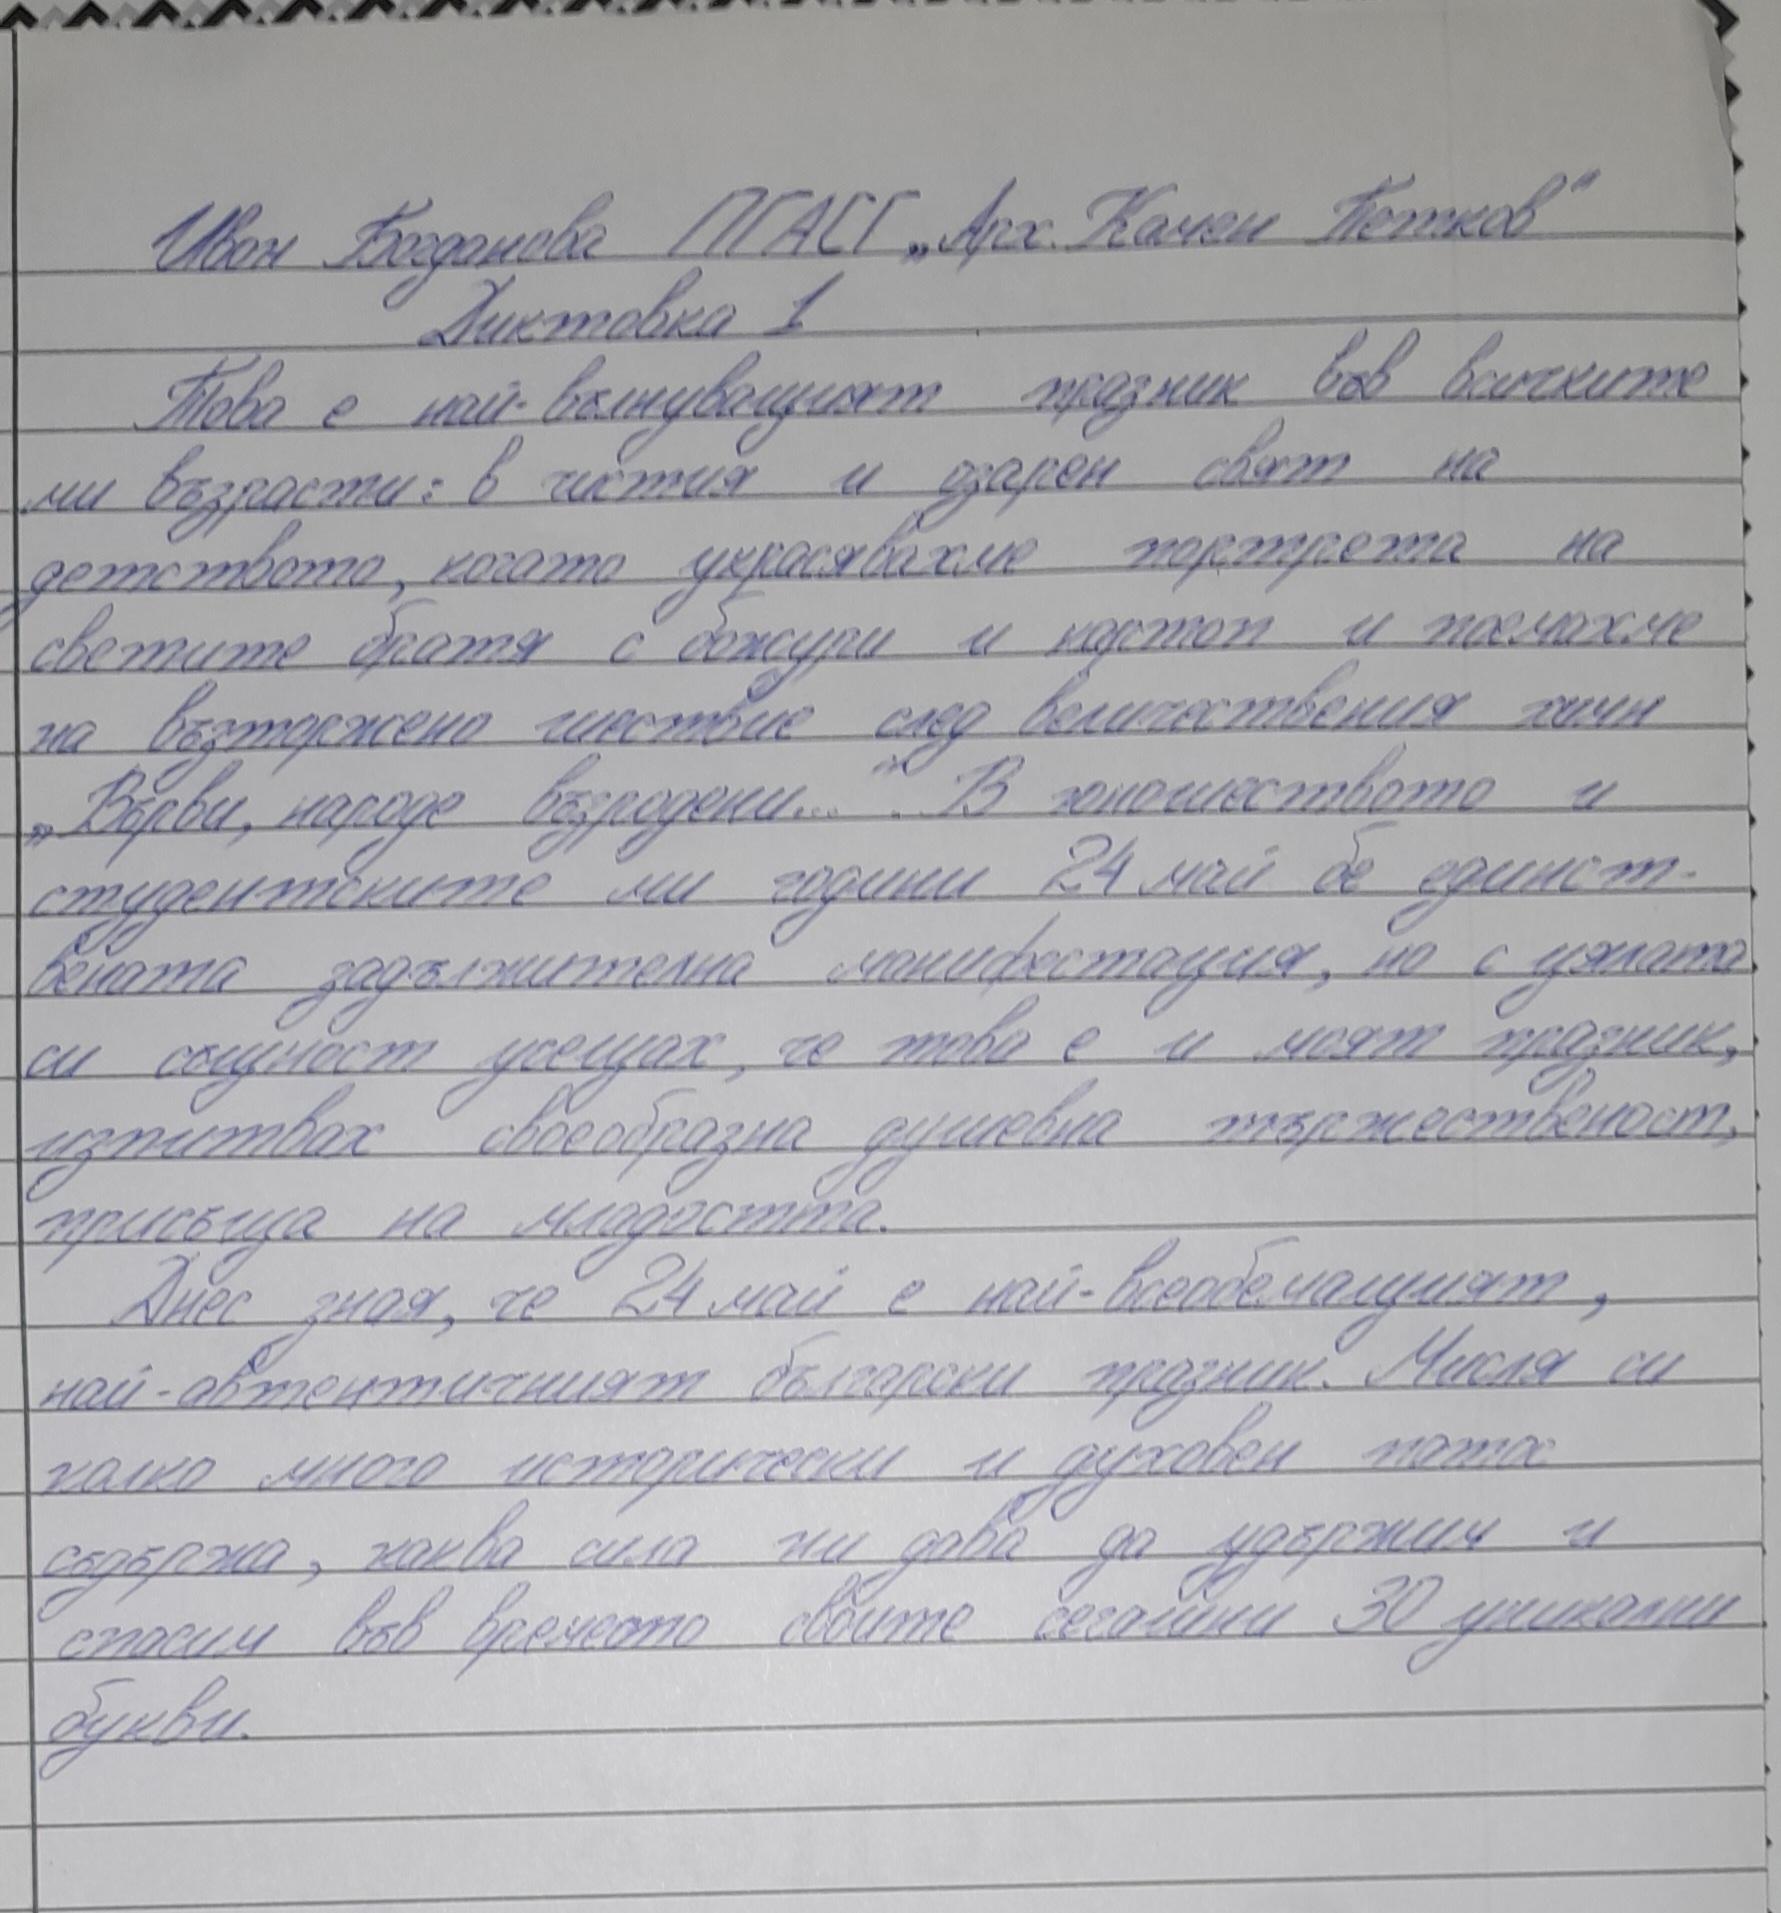 Иван Богданова ПГАСГ „Арх. Камен Петков“
Диктовка 1
Това е най-вълнуващият празник във всичките
ми възрасти: в чистия и озарен свят на
детството, когато украсявахме портрета на
светите братя с божури и картон и поемахме
на възторжено шествие след величествения химн
„Върви, народе възродени...“. В юношеството и
студентските ми години 24 май бе единст-
вената задължителна манифестация, но с цялата
си същност усещах, че това е и моят празник,
изпитвах своеобразна душевна тържественост,
присъща на младостта.
Днес зная, че 24 май е най-всеобемащият,
най-автентичният български празник. Мисля си
колко много исторически и духовен патос
съдържа, каква сила ни дава да удържим и
спасим във времето своите сегашни 30 уникални
букви.